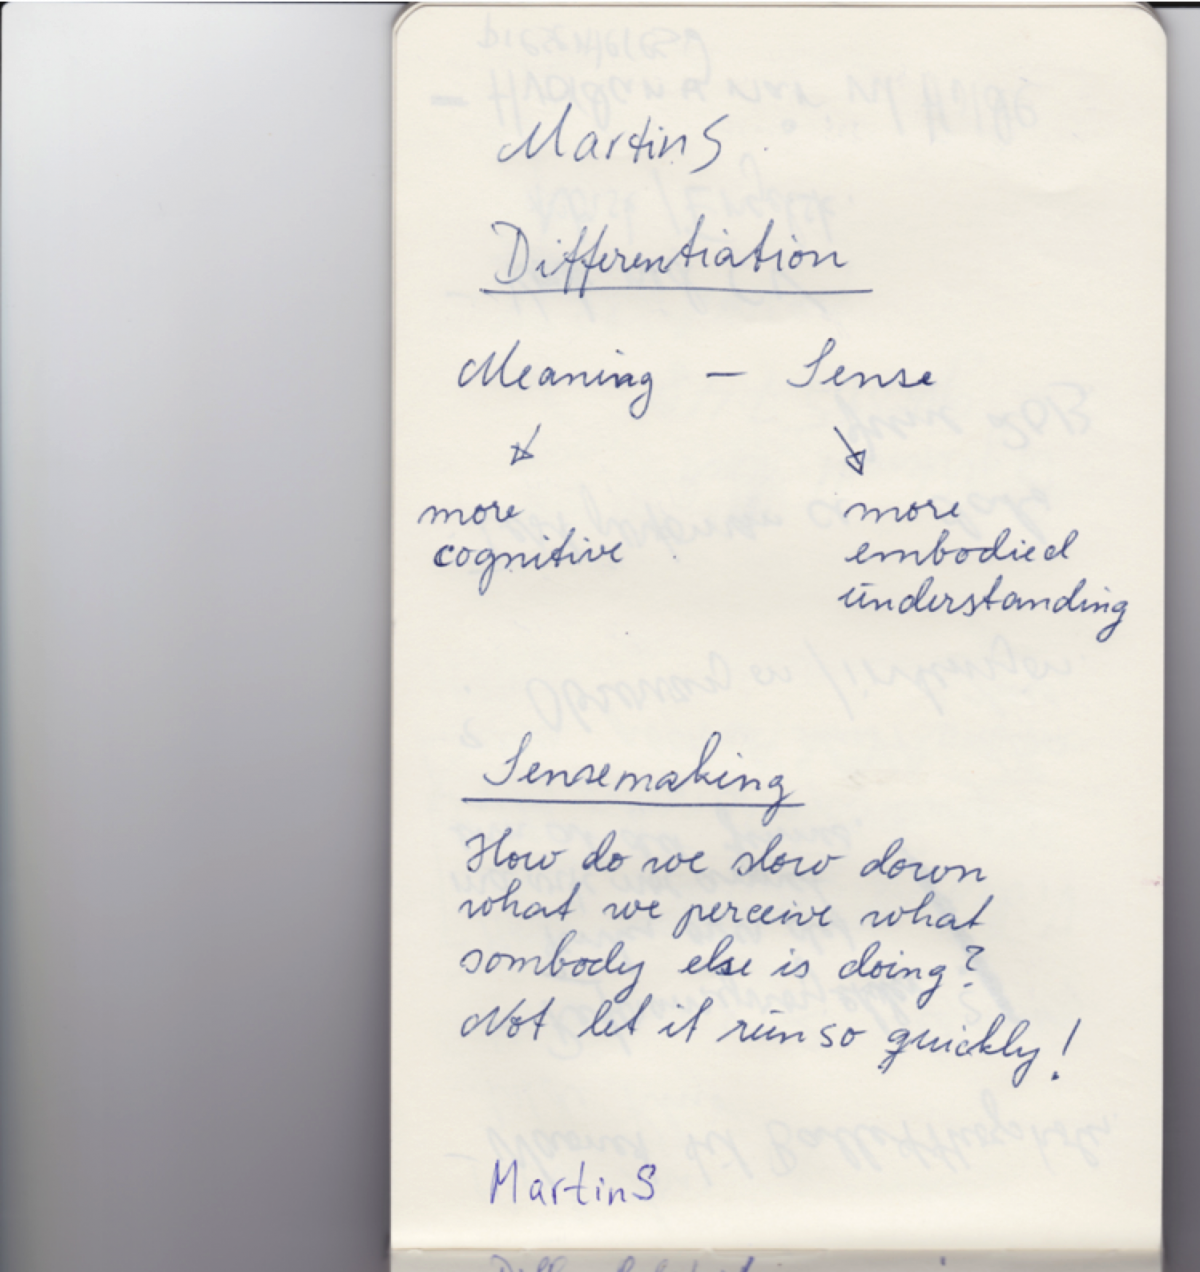 Martin S
Differentiation
Meaning — Sense
more more
cognitive embodied
understanding
Sensemaking
How do we slow down
what we perceive what
sombody else is doing?
Not let it run so quickly!
Martin S